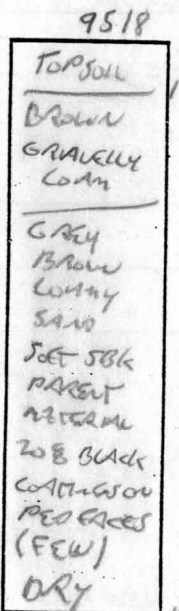 9518
TOPSOIL
BROWN
GRAVELLY
LOAM
GREY
BROWN
LOAMY
SAND
SOFT SBK
PARENT
MATERIAL
20% BLACK
COATINGS ON
PED FACES
(FEW)
DRY